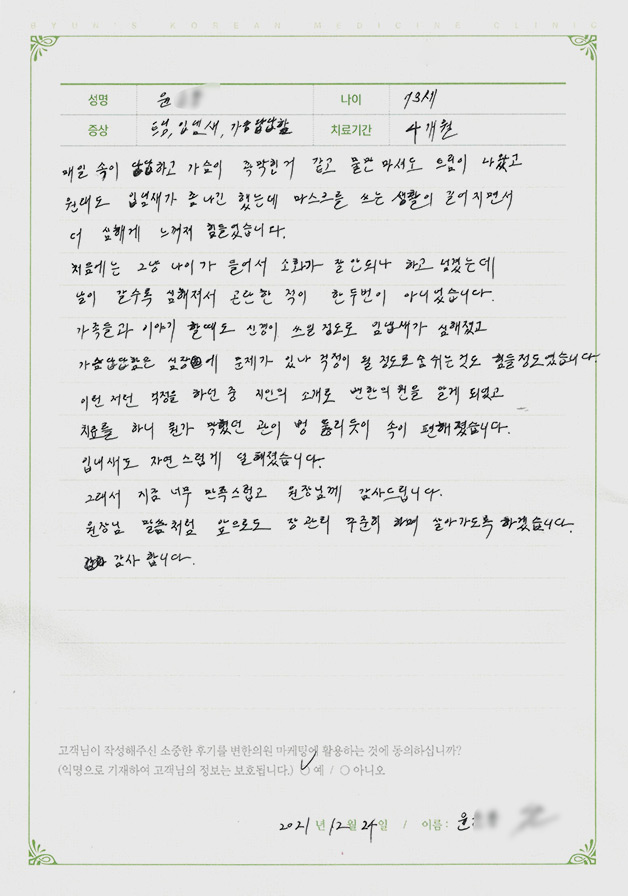 BYUN'S KOREAN MEDICINE CLINIC
성명 윤 나이 73세
증상 트림, 입냄새, 가슴답답함 치료기간 4개월
매일 속이 답답하고 가슴이 꽉막힌거 같고 물만 마셔도 트림이 나왔고
원래도 입냄새가 좀 나긴 했는데 마스크를 쓰는 생활이 길어지면서
더 심해게 느껴져 힘들었습니다.
처음에는 그냥 나이가 들어서 소화가 잘 안되나 하고 넘겼는데
날이 갈수록 심해져서 곤란한 적이 한두번이 아니었습니다.
가족들과 이야기 할때도 신경이 쓰일정도로 입냄새가 심해졌고
가슴답답함은 심장에 문제가 있나 걱정이 될 정도로 숨쉬는것도 힘들정도였습니다.
이런 저런 걱정을 하던 중 지인의 소개로 변한의원을 알게 되었고
치료를 하니 뭔가 막혔던 관이 뻥 뚫리듯이 속이 편해졌습니다.
입내새도 자연스럽게 덜해졌습니다.
그래서 지금 너무 만족스럽고 원장님께 감사드립니다.
원장님 말씀처럼 앞으로도 잘 관리 꾸준히 하며 살아가도록 하겠습니다.
감사합니다.
고객님이 작성해주신 소중한 후기를 변한의원 마케팅에 활용하는 것에 동의하십니까?
(익명으로 기재하여 고객님의 정보는 보호됩니다.) ○ 예 / ○ 아니오
2021 년 12월 24일 / 이름 : 윤